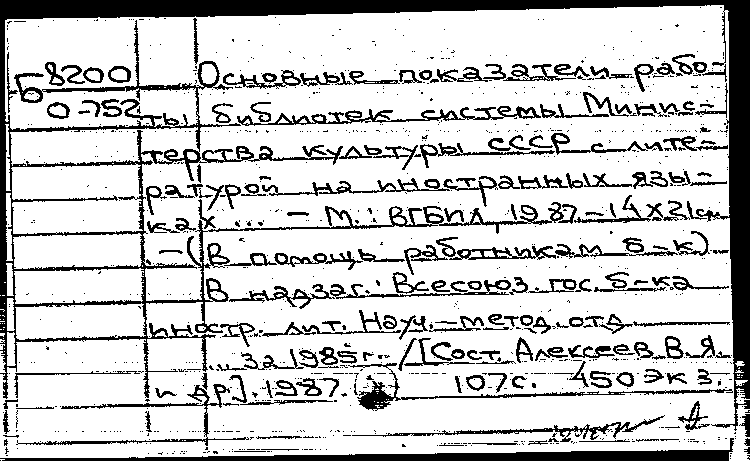 Б 8200 Основные показатели рабо-
0-752 ты библиотек системы Минис-
терства культуры СССР с лите-
ратурой на иностранных язы-
ках ... – М.: ВГБИЛ, 1987.–14х21см
. –(В помощь работникам б-к)
В надзаг.: Всесоюз. гос. б-ка
иностр. лит. Науч.–метод. отд.
... за 1985г. /[Сост. Алексеев В.Я.
и др]. 1987. 107с. 450экз.